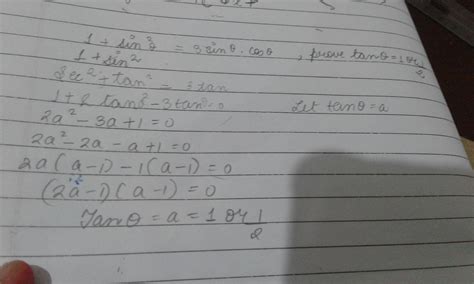 1 + sin²θ = 3 sinθ . cosθ , prove tanθ = 1 or 1/2
1 + sin²
Sec² + tan² = 3 tan
1 + 2 tan² - 3 tan = 0 Let tanθ = a
2a² - 3a + 1 = 0
2a² - 2a - a + 1 = 0
2a (a - 1) - 1 (a - 1) = 0
(2a - 1) (a - 1) = 0
Tanθ = a = 1 or 1/2